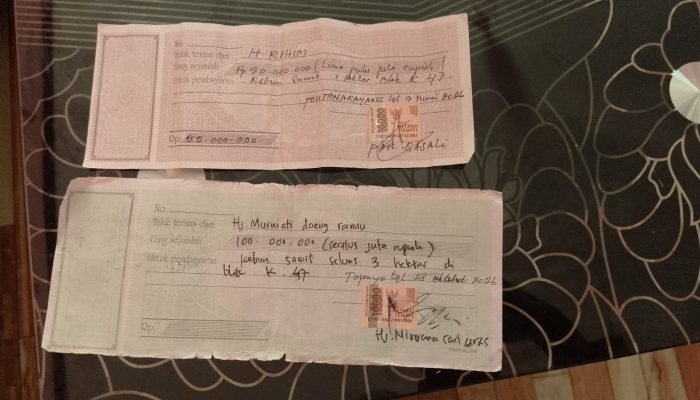 No.
Telah terima dari H. RAHIM
Uang sejumlah Rp 50.000.000 (Lima pulu juta rupiah)
Untuk pembayaran Kebun Sawit 1 Hektar Blok K 47
tgl 9 2026
Rp. 50.000.000
10.000
METERAI
TEMPEL
No.
Telah terima dari Hj Murniati daeng ramu
Uang sejumlah 100.000.000 (seratus juta rupiah)
Untuk pembayaran kebun sawit seluas 3 hektar di
blok K 47
Topoyo tgl 28 2026
10.000
METERAI
TEMPEL
Rp.
Hj. Sari
PAPERLINE